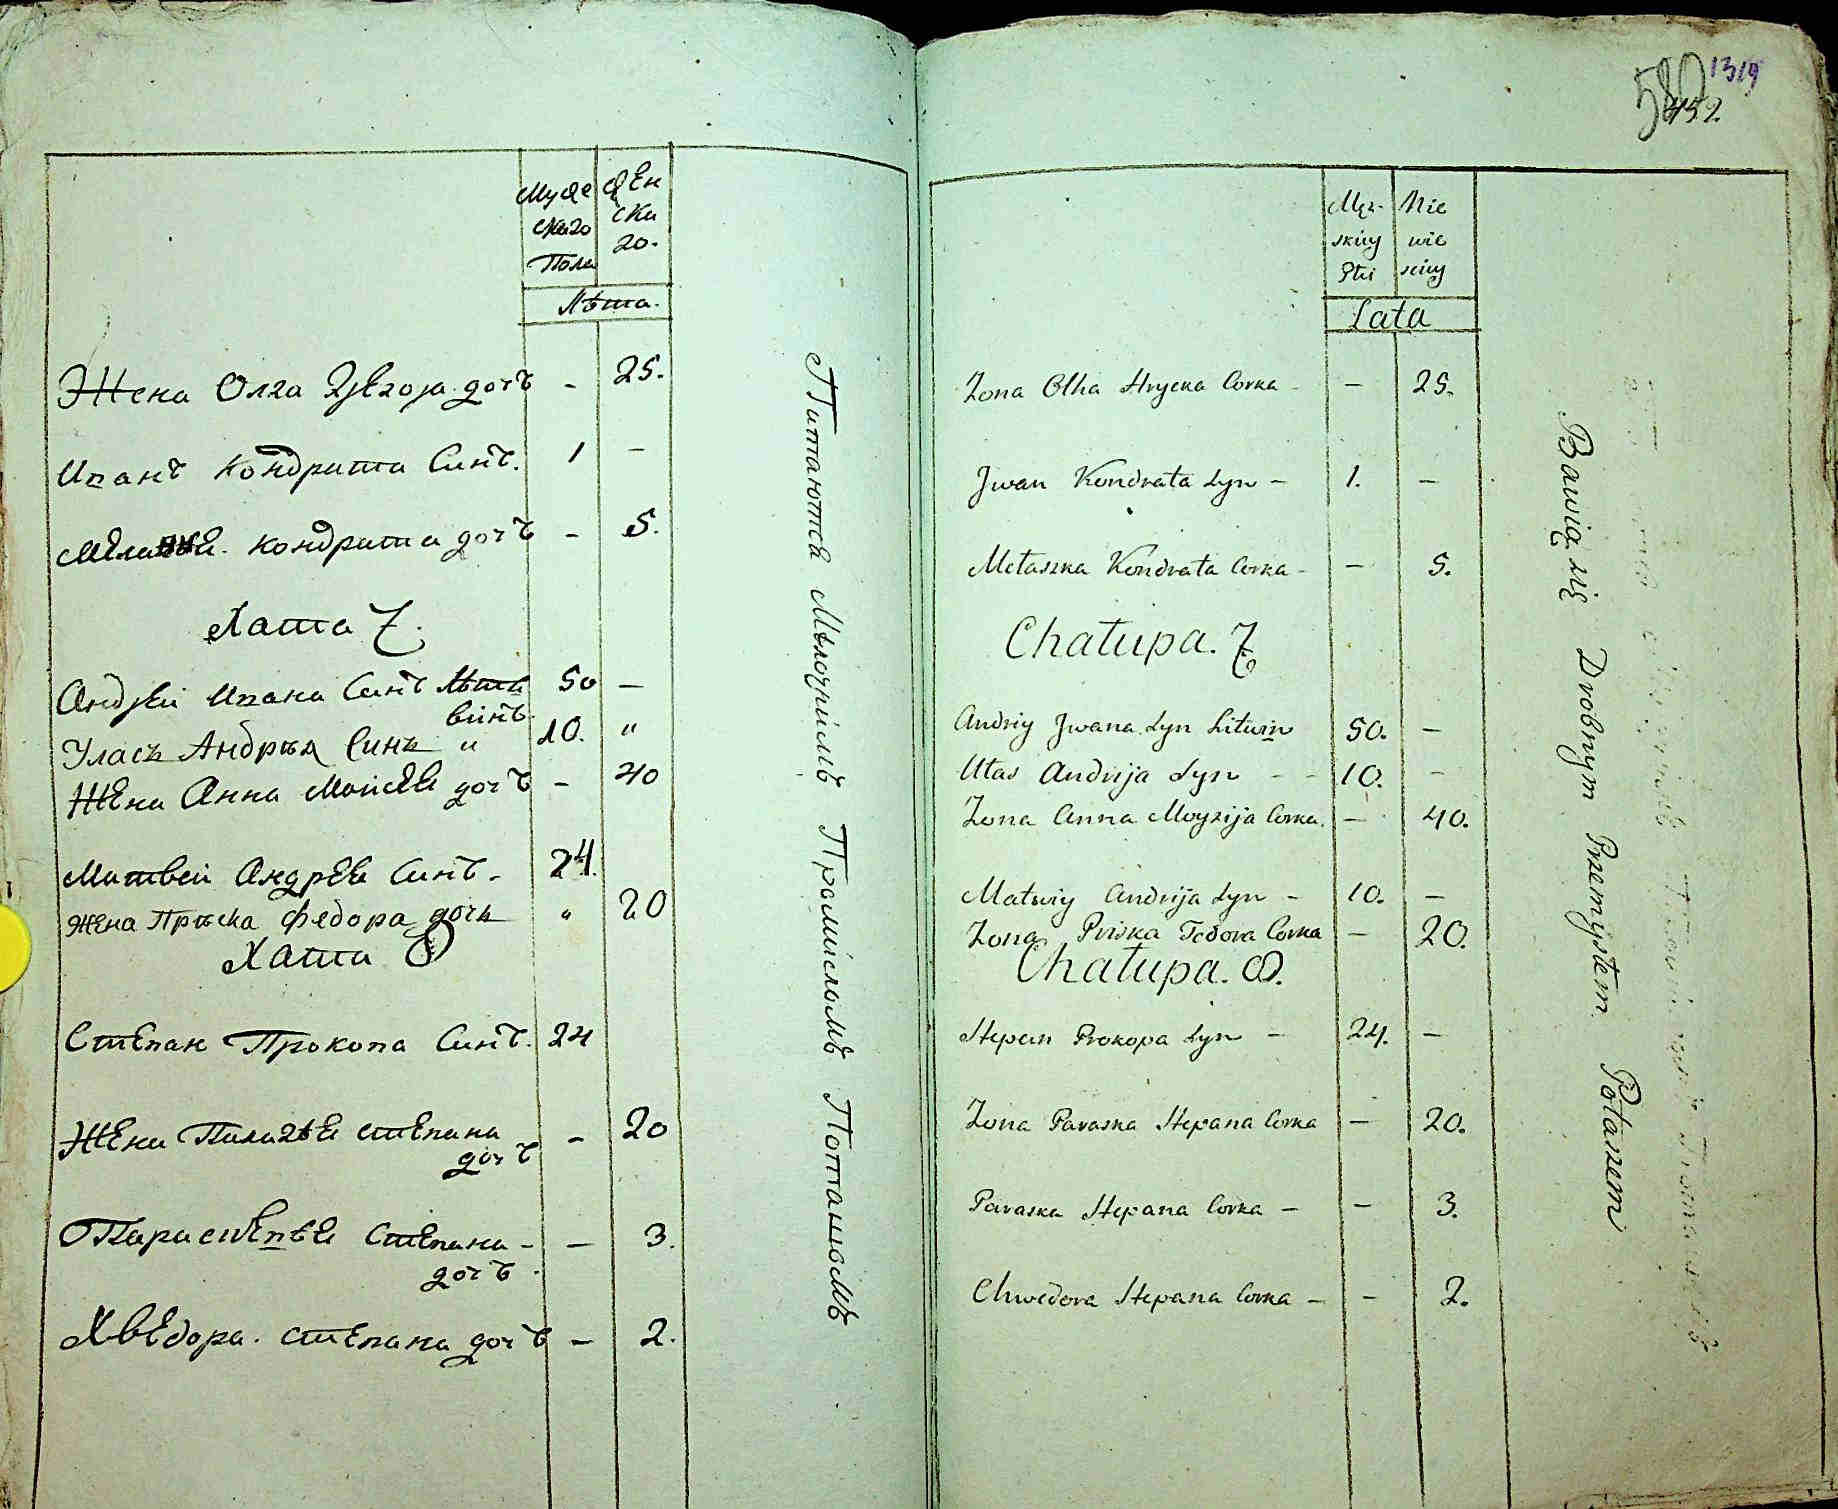 Муже
ского
Пола
Жен
ска
го.
Лѣта.
Жена Олга дочъ - 25.
Иванъ Кондрата Синъ. 1 -
Кондрата дочъ - 5.
Хата 7.
Андрей Ивана Синъ Лѣт
винъ. 50 -
Уласъ Андрѣя Синъ " 10. "
Жена Анна Мойсѣѣ дочъ - 40
Матвей Андрѣѣ Синъ - 24.
Жена Прѣска Федора дочъ " 20
Хата 8
Степан Прокопа Синъ. 24
Жена Палагѣѣ Степана
дочъ - 20
Степана - - 3.
дочъ.
Хведора. Степана дочъ - 2.
Питаются Мѣлочнимъ Промисломъ Поташомъ
1319
580
452.
Męz-
skiey
Płci
Nie
wie
sciey
Lata
Zona Olha Hrycka Corka - - 25.
Jwan Kondrata Syn - 1. -
Mełaszka Kondrata Corka - - 5.
Chałupa. 7
Andriy Jwana Syn Litwin 50. -
Ułas Andrija Syn - - 10. -
Zona Anna Moyzija Corka. - 40.
Matwiy Andrija Syn - 10. -
Zona Priska Fedora Corka - 20.
Chałupa. 8.
Stepan Prokopa Syn - 24. -
Zona Paraska Stepana Corka - 20.
Paraska Stepana Corka - - 3.
Chwedora Stepana Corka - - 2.
Bawią się Drobnym Przemysłem Potaszem